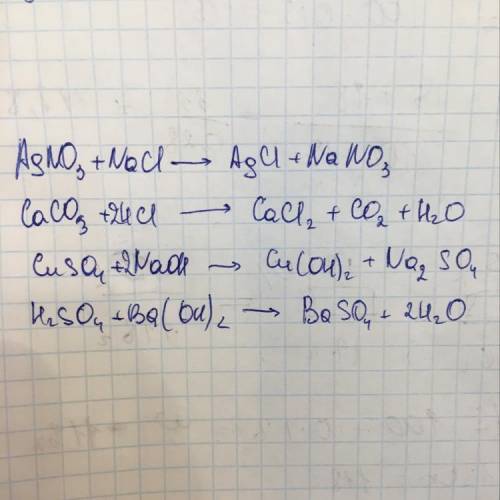 AgNO₃ + NaCl → AgCl + NaNO₃
CaCO₃ + 2HCl → CaCl₂ + CO₂ + H₂O
CuSO₄ + 2NaOH → Cu(OH)₂ + Na₂SO₄
H₂SO₄ + Ba(OH)₂ → BaSO₄ + 2H₂O